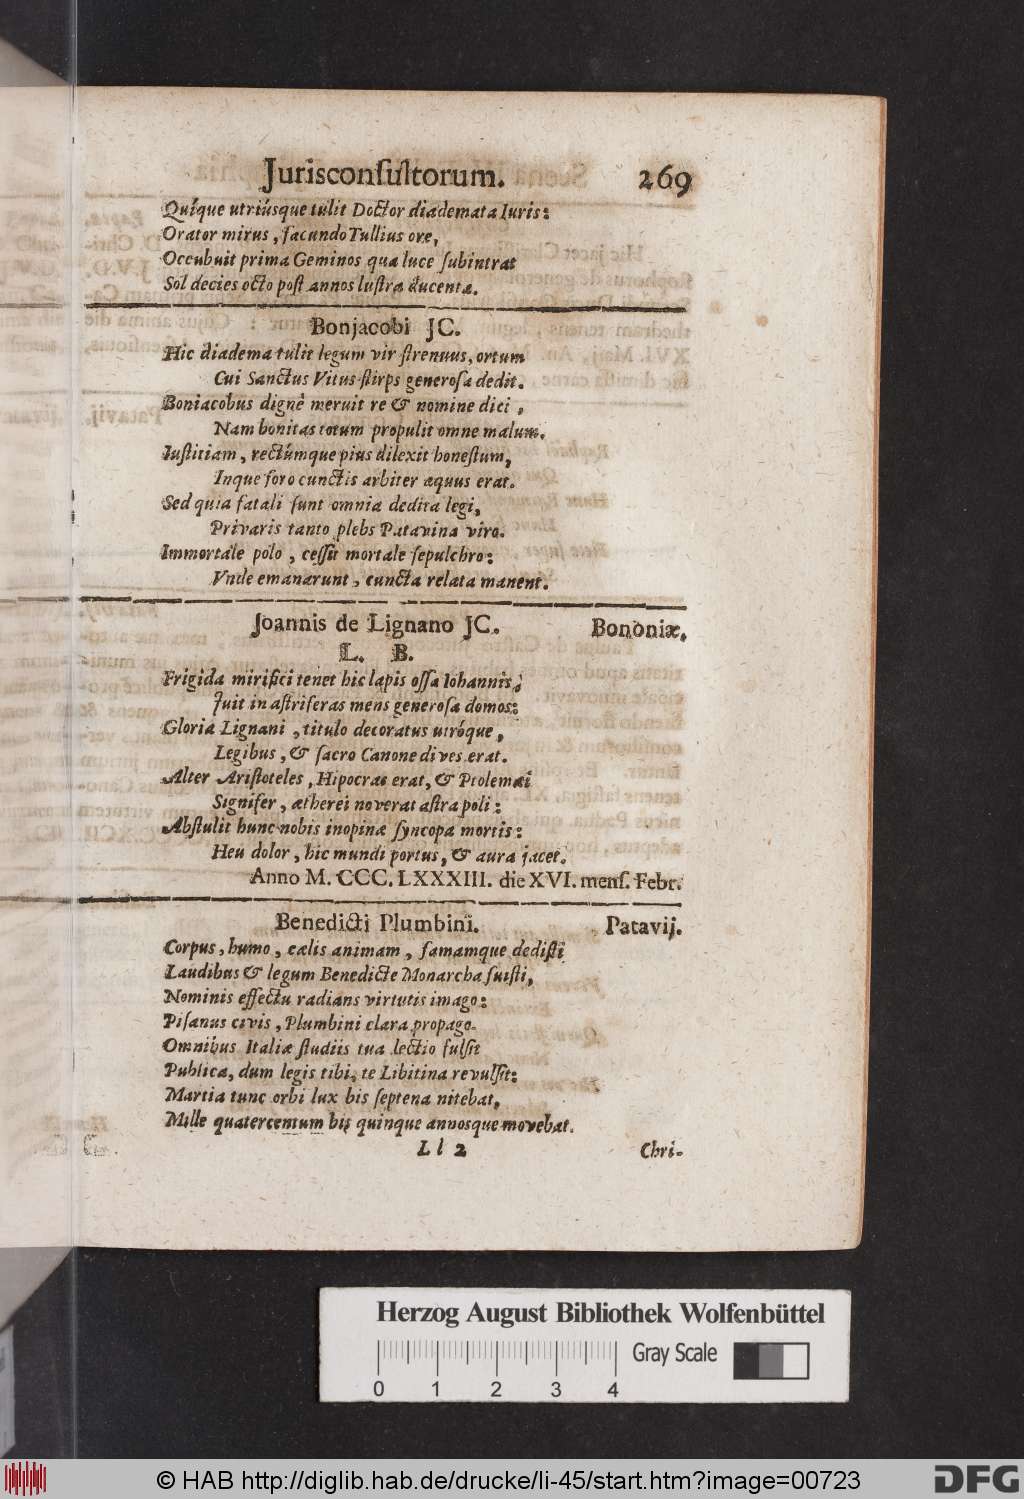 Jurisconſultorum. 269
Quíque utriúsque tulit Doctor diademata Iuris:
Orator mirus, facundo Tullius ore,
Occubuit prima Geminos qua luce ſubintrat
Sol decies octo poſt annos luſtra ducenta.
Bonjacobi JC.
Hic diadema tulit legum vir ſtrenuus, ortum
Cui Sanctus Vitus ſtirps generoſa dedit.
Boniacobus dignè meruit re & nomine dici,
Nam bonitas totum propulit omne malum.
Iuſtitiam, rectúmque pius dilexit honeſtum,
Inque foro cunctis arbiter æquus erat.
Sed quia fatali ſunt omnia dedita legi,
Privaris tanto plebs Patavina viro.
Immortale polo, ceſſit mortale ſepulchro:
Vnde emanarunt, cuncta relata manent.
Joannis de Lignano JC. Bononiæ.
L. B.
Frigida mirifici tenet hic lapis oſſa Iohannis,
Juit in aſtriferas mens generoſa domos:
Gloria Lignani, titulo decoratus utróque,
Legibus, & ſacro Canone dives erat.
Alter Ariſtoteles, Hipocras erat, & Ptolemæi
Signifer, ætherei noverat aſtra poli:
Abſtulit hunc nobis inopinæ ſyncopa mortis:
Heu dolor, hic mundi portus, & aura jacet.
Anno M. CCC. LXXXIII. die XVI. menſ. Febr.
Benedicti Plumbini. Patavij.
Corpus, humo, cælis animam, famamque dediſti
Laudibus & legum Benedicte Monarcha fuiſti,
Nominis effectu radians virtutis imago:
Piſanus civis, Plumbini clara propago.
Omnibus Italiæ ſtudiis tua lectio fulſit
Publica, dum legis tibi, te Libitina revulſit:
Martia tunc orbi lux bis ſeptena nitebat,
Mille quatercentum bis quinque annosque movebat.
Ll 2 Chri-
Herzog August Bibliothek Wolfenbüttel
Gray Scale
0 1 2 3 4
© HAB http://diglib.hab.de/drucke/li-45/start.htm?image=00723
DFG